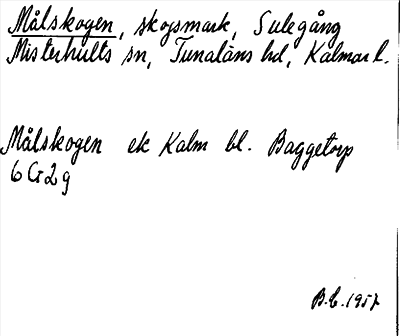 Målskogen, skogsmark, Sulegång
Misterhults sn, Tunaläns hd, Kalmar l.
Målskogen ek Kalm bl. Baggetorp
6 G 2 g
B.C. 1957